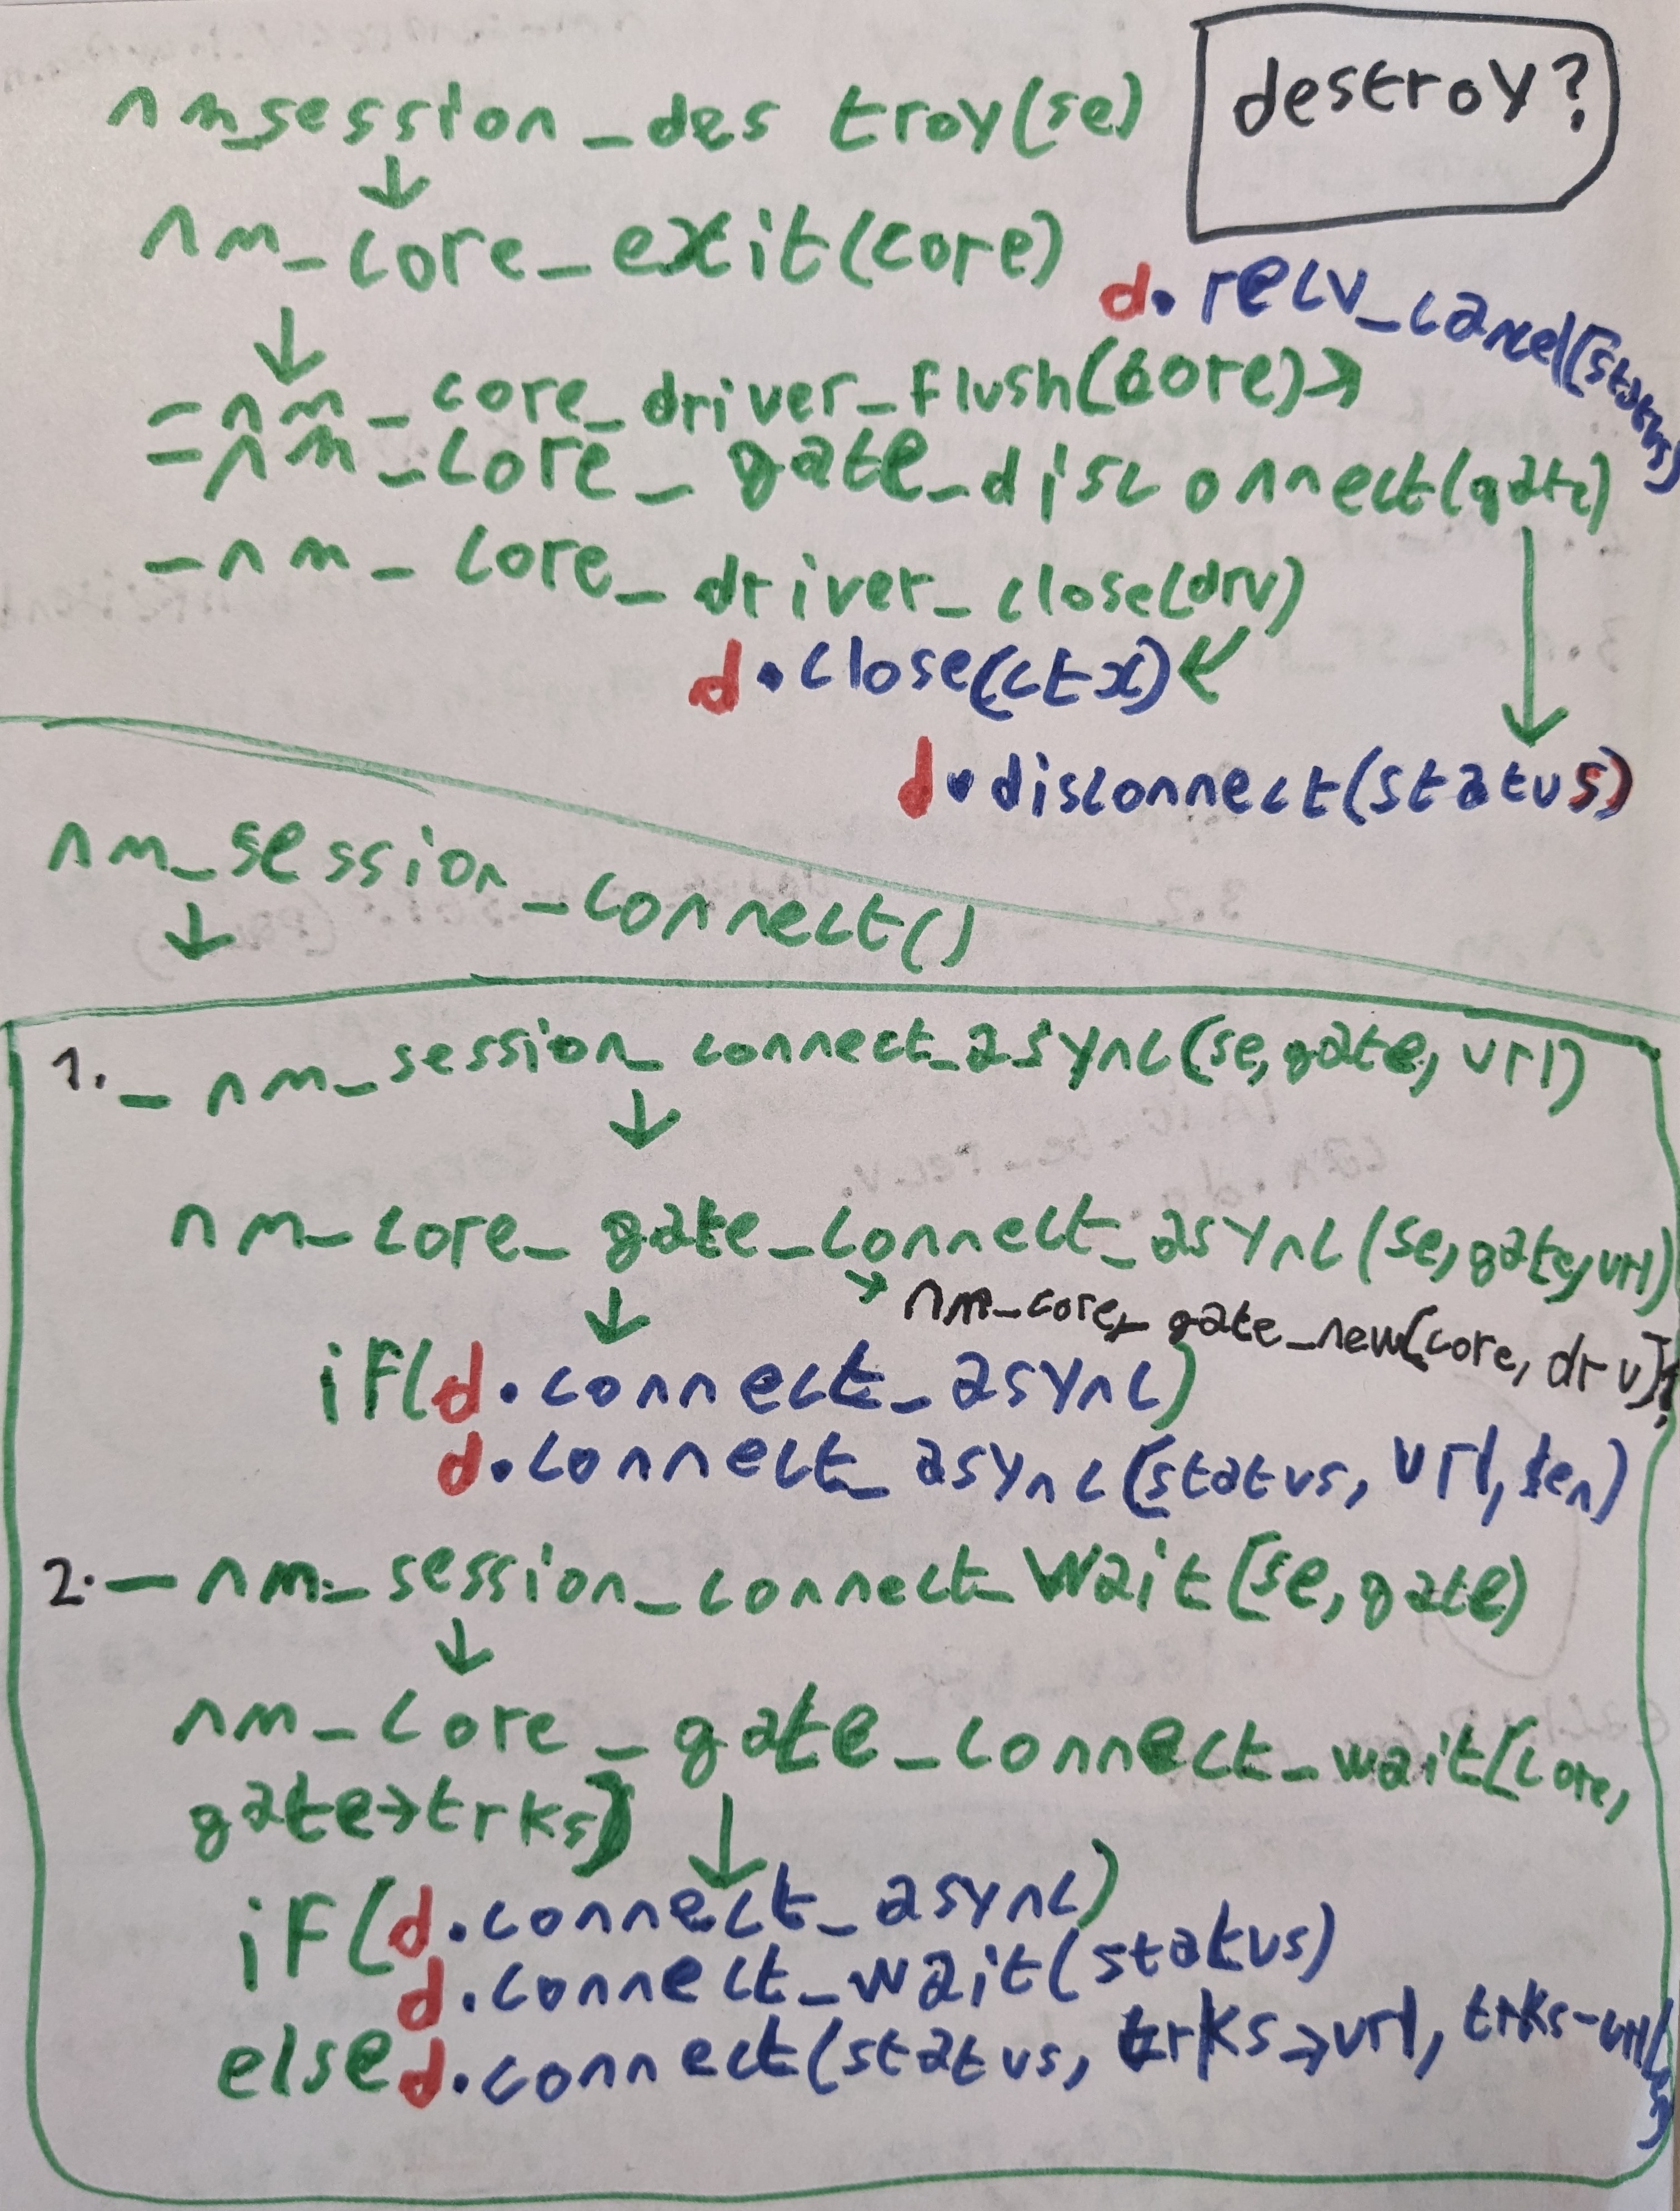 destroy?
nm_session_des troy(se)
↓
nm_core_exit(core)
↓
d.recv_cancel(status)
- nm_core_driver_flush(core)→
- nm_core_gate_disconnect(gate)
- nm_core_driver_close(drv)
d.close(ctx)
d.disconnect(status)
nm_session_connect()
↓
1. - nm_session_connect_async(se,gate, url)
↓
nm_core_gate_connect_async(se,gate,url)
→ nm_core_gate_new(core, drv);
↓
if(d.connect_async)
d.connect_async(status, url, len)
2. - nm_session_connect_wait(se,gate)
↓
nm_core_gate_connect_wait(core,
gate→trks)
↓
if(d.connect_async)
d.connect_wait(status)
else d.connect(status, trks→url,